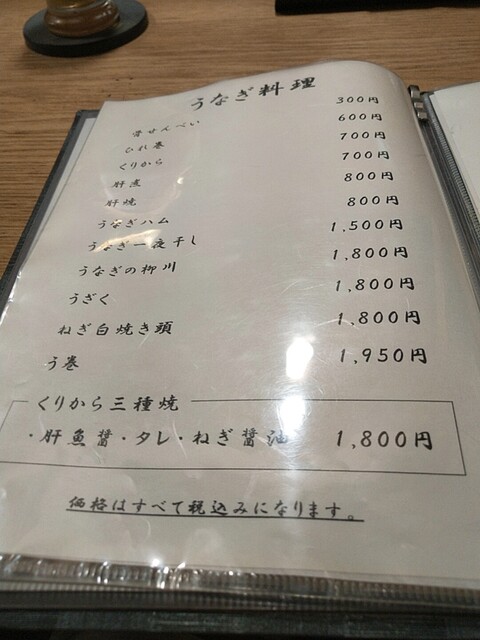 うなぎ料理
骨せんべい 300円
ひれ巻 600円
くりから 700円
肝煮 700円
肝焼 800円
うなぎハム 800円
うなぎ一夜干し 1,500円
うなぎの柳川 1,800円
うざく 1,800円
ねぎ白焼き頭 1,800円
う巻 1,950円
くりから三種焼
・肝魚醤・タレ・ねぎ醤油 1,800円
価格はすべて税込みになります。